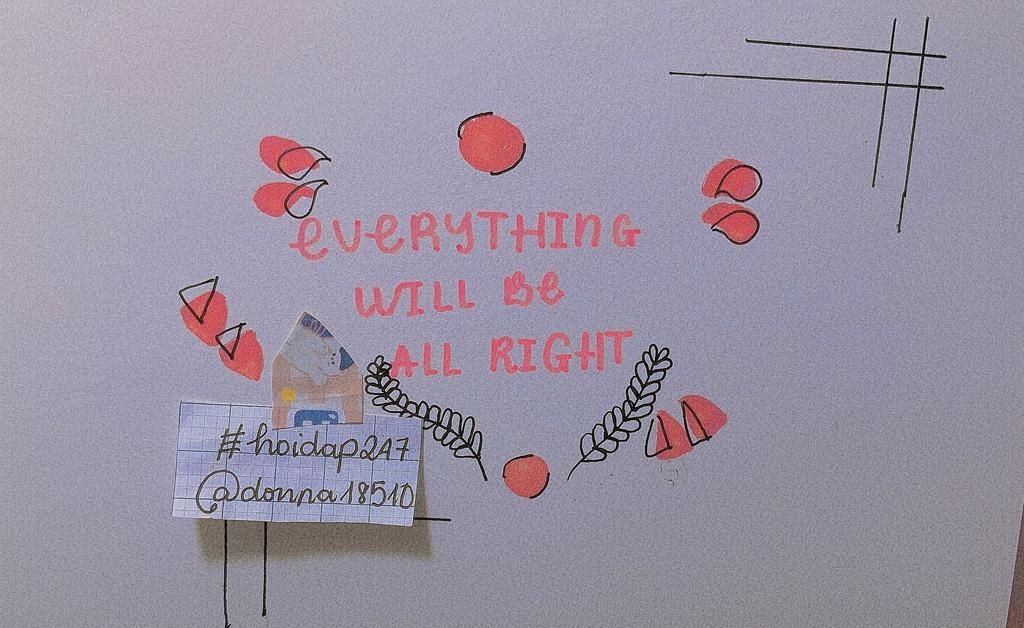 eVeRYTHING
WILL Be
ALL RIGHT
#hoidap247
@donna18510